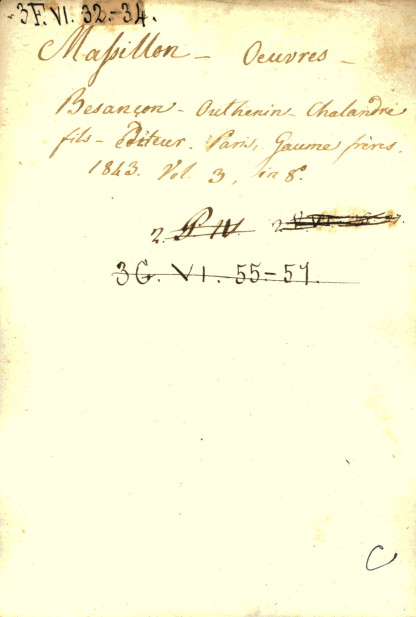 3F. VI. 32.-34.
Massillon - Oeuvres -
Besançon - Outhenin - Chalandre
fils - Éditeur. Paris, Gaume frères.
1843. Vol. 3, in 8°.
2. P IV. 2.
3G. VI. 55-57.
C